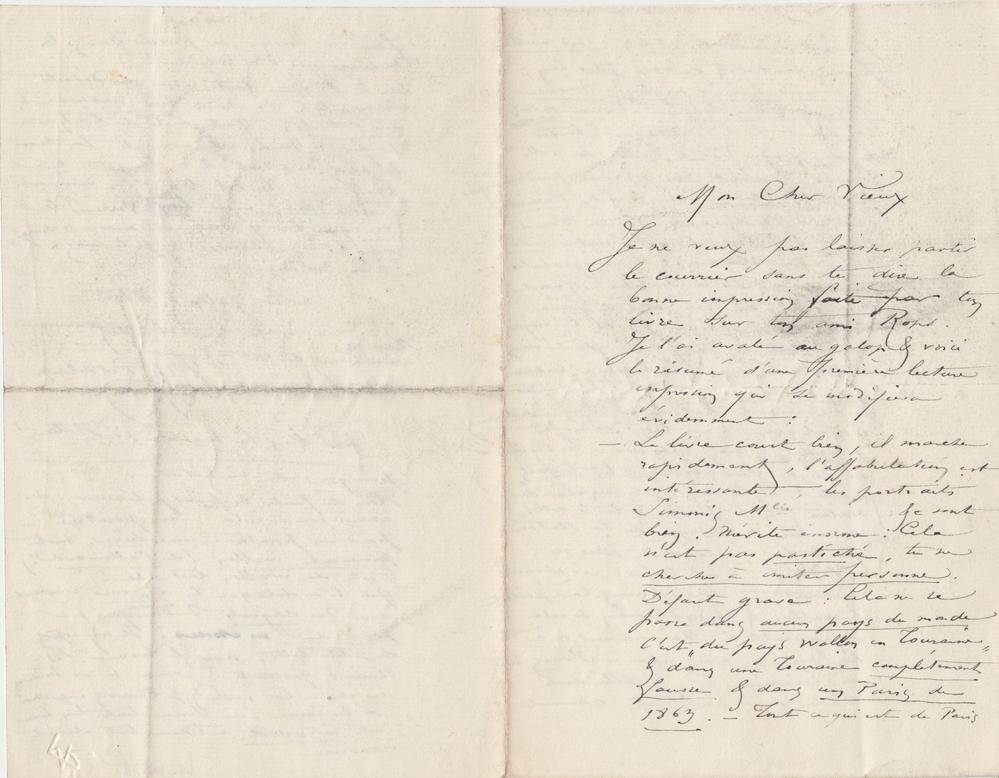 Mon Cher Vieux
Je ne veux pas laisser partir
le courrier sans te dire la
bonne impression faite par ton
livre sur ton ami Rops.
Je l'ai avalé au galop & voici
le résumé d'une première lecture
impression qui se modifiera
évidemment :
— Le livre court bien, il marche
rapidement, l'affabulation est
intéressante, les portraits
Simonis Mlle &c sont
bien. Mérite énorme : Cela
n'est pas pastiché, tu ne
cherches à imiter personne.
Défaut grave : Cela ne se
passe dans aucun pays du monde
C'est „du pays wallon en Touraine„
& dans une Touraine complètement
fausse & dans un Paris de
1863. — Tout ce qui est de Paris